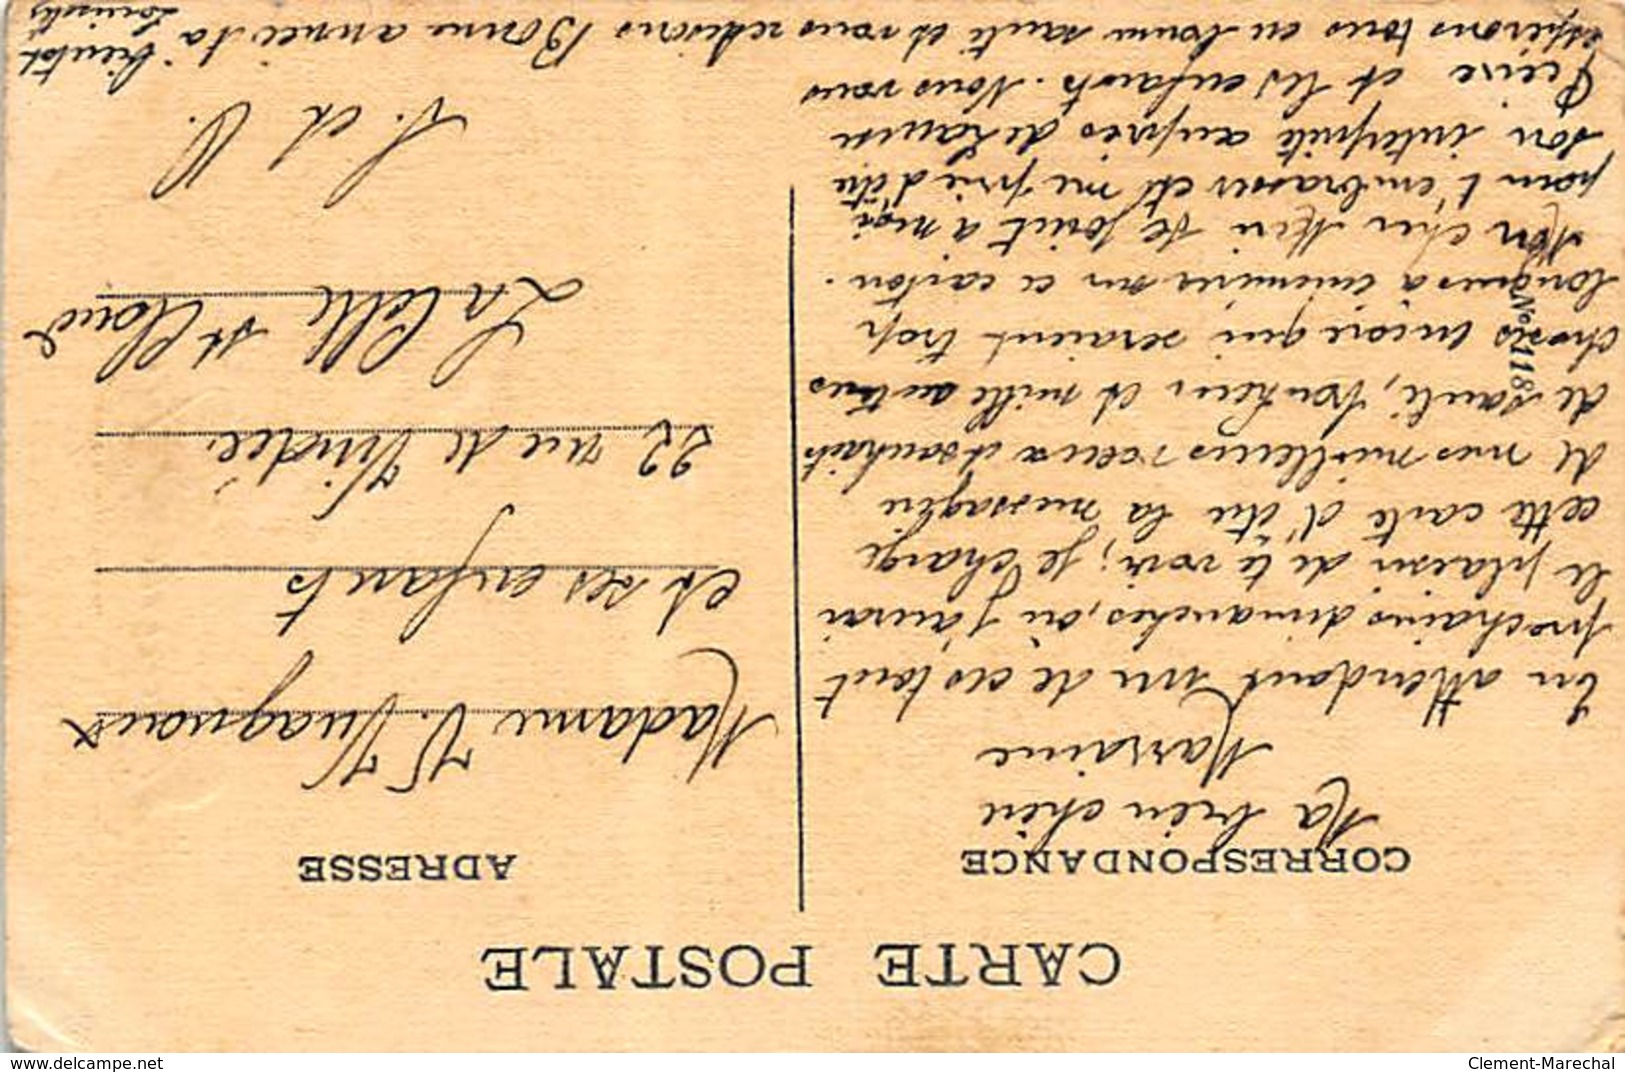 CARTE POSTALE
CORRESPONDANCE
Ma bien chère
Marraine
En attendant un de ces tout
prochains dimanches, où j'aurai
le plaisir de te voir, je charge
cette carte d'être la messagère
de mes meilleurs vœux et souhaits
de santé, bonheur et mille autres
choses encore qui seraient trop
longues à énumérer sur ce carton.
Mon cher Meri se joint à moi
pour t'embrasser et me prie d'être
son interprète auprès de
et les enfants. Nous vous
espérons tous en bonne santé et vous redisons Bonne année et à bientôt
Louisette
ADRESSE
Madame V. Vuagnoux
et ses enfants
22 rue de Vindé
La Celle St Cloud
S. et O.
No 118
delcampe.net
Clement-Marechal